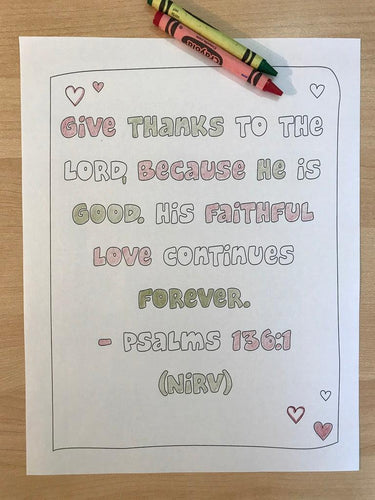 Crayola
Give THANKS TO THE
LORD, Because He is
GOOD. His FAITHFUL
LOVE CONTINUES
FOREVER.
- PSALMS 136:1
(NiRV)